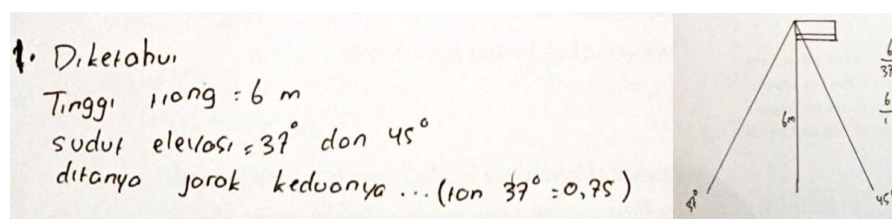 1. Diketahui
Tinggi tiang = 6 m
sudut elevasi = 37° dan 45°
ditanya jarak keduanya ... (tan 37° = 0,75)
6m
37°
45°
6
37
6